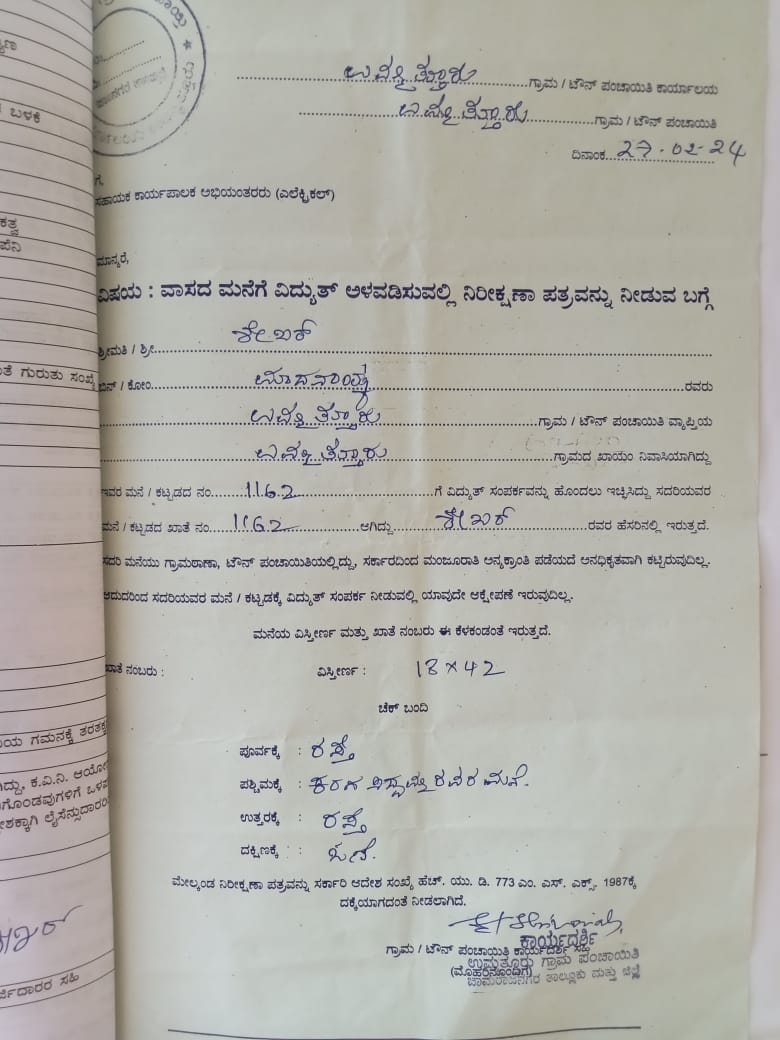 ಉಮ್ಮತ್ತೂರು ಗ್ರಾಮ / ಟೌನ್ ಪಂಚಾಯಿತಿ ಕಾರ್ಯಾಲಯ
ಉಮ್ಮತ್ತೂರು ಗ್ರಾಮ / ಟೌನ್ ಪಂಚಾಯಿತಿ
ದಿನಾಂಕ 27-02-24
ಗೆ,
ಸಹಾಯಕ ಕಾರ್ಯಪಾಲಕ ಅಭಿಯಂತರರು (ಎಲೆಕ್ಟ್ರಿಕಲ್)
ಮಾನ್ಯರೆ,
ವಿಷಯ : ವಾಸದ ಮನೆಗೆ ವಿದ್ಯುತ್ ಅಳವಡಿಸುವಲ್ಲಿ ನಿರೀಕ್ಷಣಾ ಪತ್ರವನ್ನು ನೀಡುವ ಬಗ್ಗೆ
ಶ್ರೀಮತಿ / ಶ್ರೀ ಶೇಖರ್
ಬಿನ್ / ಕೋಂ ಮಾದನಾಯ್ಕ ರವರು
ಉಮ್ಮತ್ತೂರು ಗ್ರಾಮ / ಟೌನ್ ಪಂಚಾಯಿತಿ ವ್ಯಾಪ್ತಿಯ
ಉಮ್ಮತ್ತೂರು ಗ್ರಾಮದ ಖಾಯಂ ನಿವಾಸಿಯಾಗಿದ್ದು
ಇವರ ಮನೆ / ಕಟ್ಟಡದ ನಂ. 1162 ಗೆ ವಿದ್ಯುತ್ ಸಂಪರ್ಕವನ್ನು ಹೊಂದಲು ಇಚ್ಛಿಸಿದ್ದು ಸದರಿಯವರ
ಮನೆ / ಕಟ್ಟಡದ ಖಾತೆ ನಂ. 1162 ಆಗಿದ್ದು ಶೇಖರ್ ರವರ ಹೆಸರಿನಲ್ಲಿ ಇರುತ್ತದೆ.
ಸದರಿ ಮನೆಯು ಗ್ರಾಮಠಾಣಾ, ಟೌನ್ ಪಂಚಾಯಿತಿಯಲ್ಲಿದ್ದು, ಸರ್ಕಾರದಿಂದ ಮಂಜೂರಾತಿ ಅನ್ಯಕ್ರಾಂತಿ ಪಡೆಯದೆ ಅನಧಿಕೃತವಾಗಿ ಕಟ್ಟಿರುವುದಿಲ್ಲ.
ಆದುದರಿಂದ ಸದರಿಯವರ ಮನೆ / ಕಟ್ಟಡಕ್ಕೆ ವಿದ್ಯುತ್ ಸಂಪರ್ಕ ನೀಡುವಲ್ಲಿ ಯಾವುದೇ ಆಕ್ಷೇಪಣೆ ಇರುವುದಿಲ್ಲ.
ಮನೆಯ ವಿಸ್ತೀರ್ಣ ಮತ್ತು ಖಾತೆ ನಂಬರು ಈ ಕೆಳಕಂಡಂತೆ ಇರುತ್ತದೆ.
ಖಾತೆ ನಂಬರು : ವಿಸ್ತೀರ್ಣ : 18 × 42
ಚೆಕ್ ಬಂದಿ
ಪೂರ್ವಕ್ಕೆ : ರಸ್ತೆ
ಪಶ್ಚಿಮಕ್ಕೆ : ರವರ ಮನೆ.
ಉತ್ತರಕ್ಕೆ : ರಸ್ತೆ
ದಕ್ಷಿಣಕ್ಕೆ : ಓಣಿ.
ಮೇಲ್ಕಂಡ ನಿರೀಕ್ಷಣಾ ಪತ್ರವನ್ನು ಸರ್ಕಾರಿ ಆದೇಶ ಸಂಖ್ಯೆ ಹೆಚ್. ಯು. ಡಿ. 773 ಎಂ. ಎಸ್. ಎಕ್ಸ್. 1987ಕ್ಕೆ
ದಕ್ಕೆಯಾಗದಂತೆ ನೀಡಲಾಗಿದೆ.
ಕಾರ್ಯದರ್ಶಿ
ಗ್ರಾಮ / ಟೌನ್ ಪಂಚಾಯಿತಿ ಕಾರ್ಯದರ್ಶಿ ಸಹಿ
ಉಮ್ಮತ್ತೂರು ಗ್ರಾಮ ಪಂಚಾಯಿತಿ
(ಮೊಹರಿನೊಂದಿಗೆ)
ಚಾಮರಾಜನಗರ ತಾಲ್ಲೂಕು ಮತ್ತು ಜಿಲ್ಲೆ